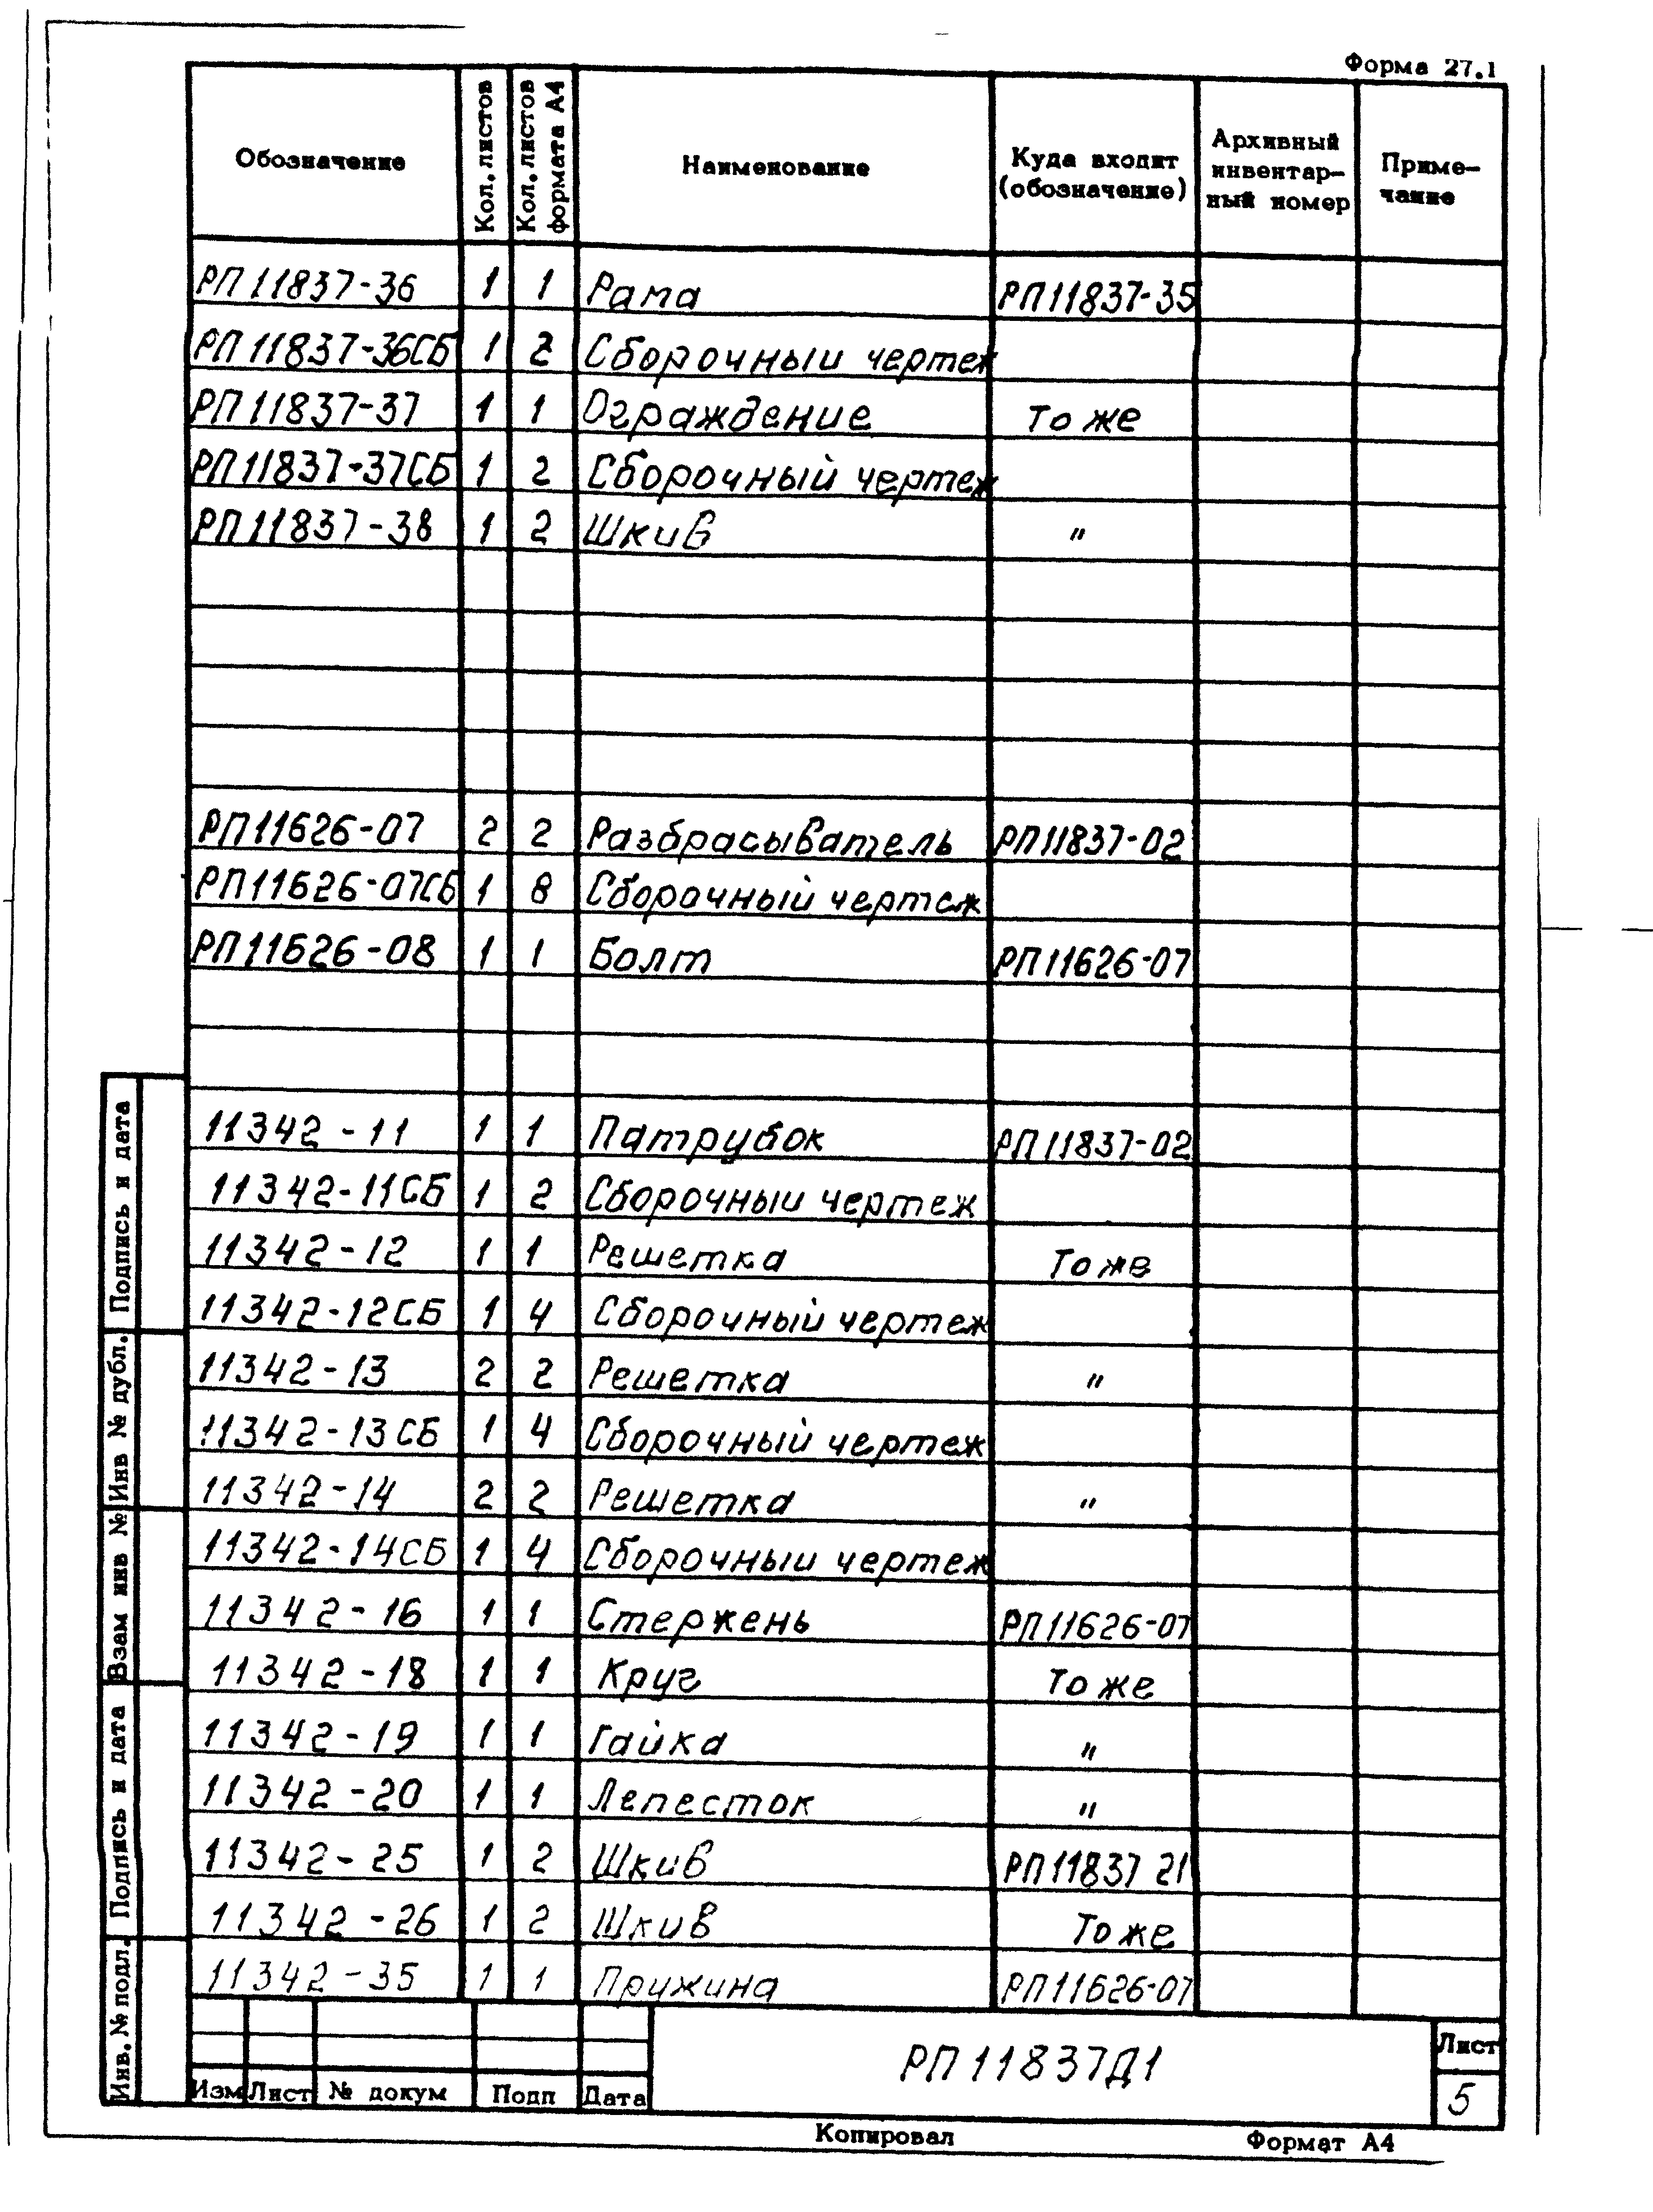 Форма 27.1
Обозначение Кол. листов Кол. листов формата А4 Наименование Куда входит (обозначение) Архивный инвентар- ный номер Приме- чание
РП11837-36 1 1 Рама РП11837-35
РП11837-36СБ 1 2 Сборочный чертеж
РП11837-37 1 1 Ограждение То же
РП11837-37СБ 1 2 Сборочный чертеж
РП11837-38 1 2 Шкив "
РП11626-07 2 2 Разбрасыватель РП11837-02
РП11626-07СБ 1 8 Сборочный чертеж
РП11626-08 1 1 Болт РП11626-07
11342-11 1 1 Патрубок РП11837-02
11342-11СБ 1 2 Сборочный чертеж
11342-12 1 1 Решетка То же
11342-12СБ 1 4 Сборочный чертеж
11342-13 2 2 Решетка "
11342-13СБ 1 4 Сборочный чертеж
11342-14 2 2 Решетка "
11342-14СБ 1 4 Сборочный чертеж
11342-16 1 1 Стержень РП11626-07
11342-18 1 1 Круг То же
11342-19 1 1 Гайка "
11342-20 1 1 Лепесток "
11342-25 1 2 Шкив РП11837 21
11342-26 1 2 Шкив То же
11342-35 1 1 Пружина РП11626-07
Инв. № подл. Подпись и дата Взам инв № Инв № дубл. Подпись и дата
РП11837Д1
Лист
5
Изм Лист № докум Подп Дата
Копировал Формат А4